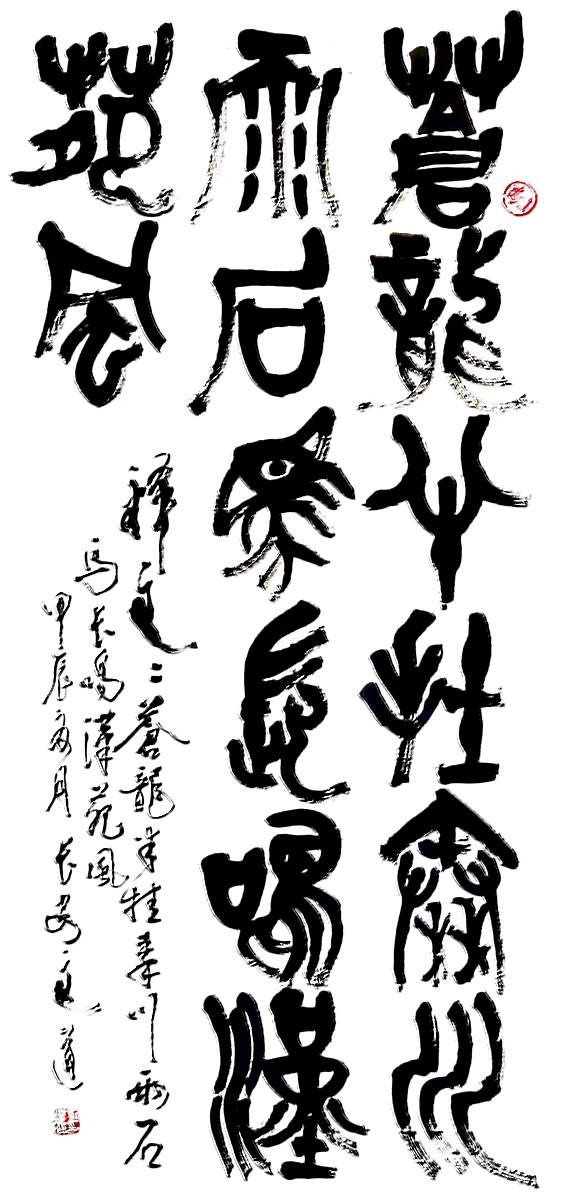 蒼龍半挂秦川
雨石馬長鳴漢
苑風
釋文：蒼龍半挂秦川雨石
馬长鳴漢苑風
甲辰 月长安